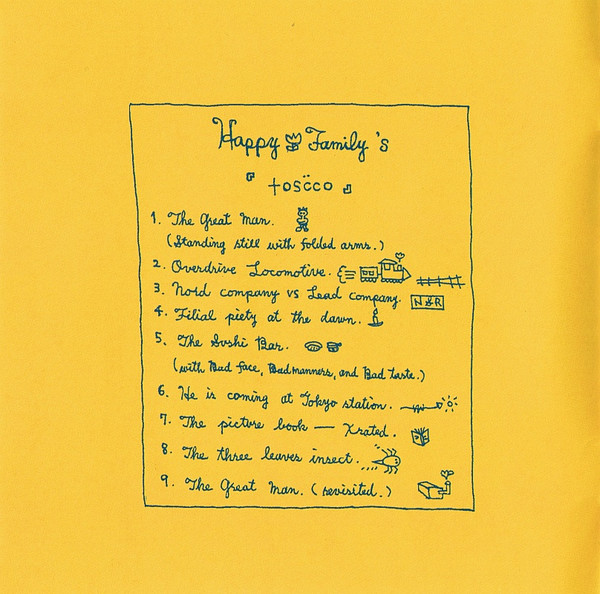 Happy Family's
『 toscco 』
1. The Great Man.
(Standing still with folded arms.)
2. Overdrive Locomotive.
3. Nord company vs Lead company.
N&R
4. Filial piety at the dawn.
5. The Sushi Bar.
(with Bad face, Bad manners, and Bad taste.)
6. He is coming at Tokyo station.
7. The picture book — X rated.
8. The three leaves insect.
9. The Great Man. (revisited.)